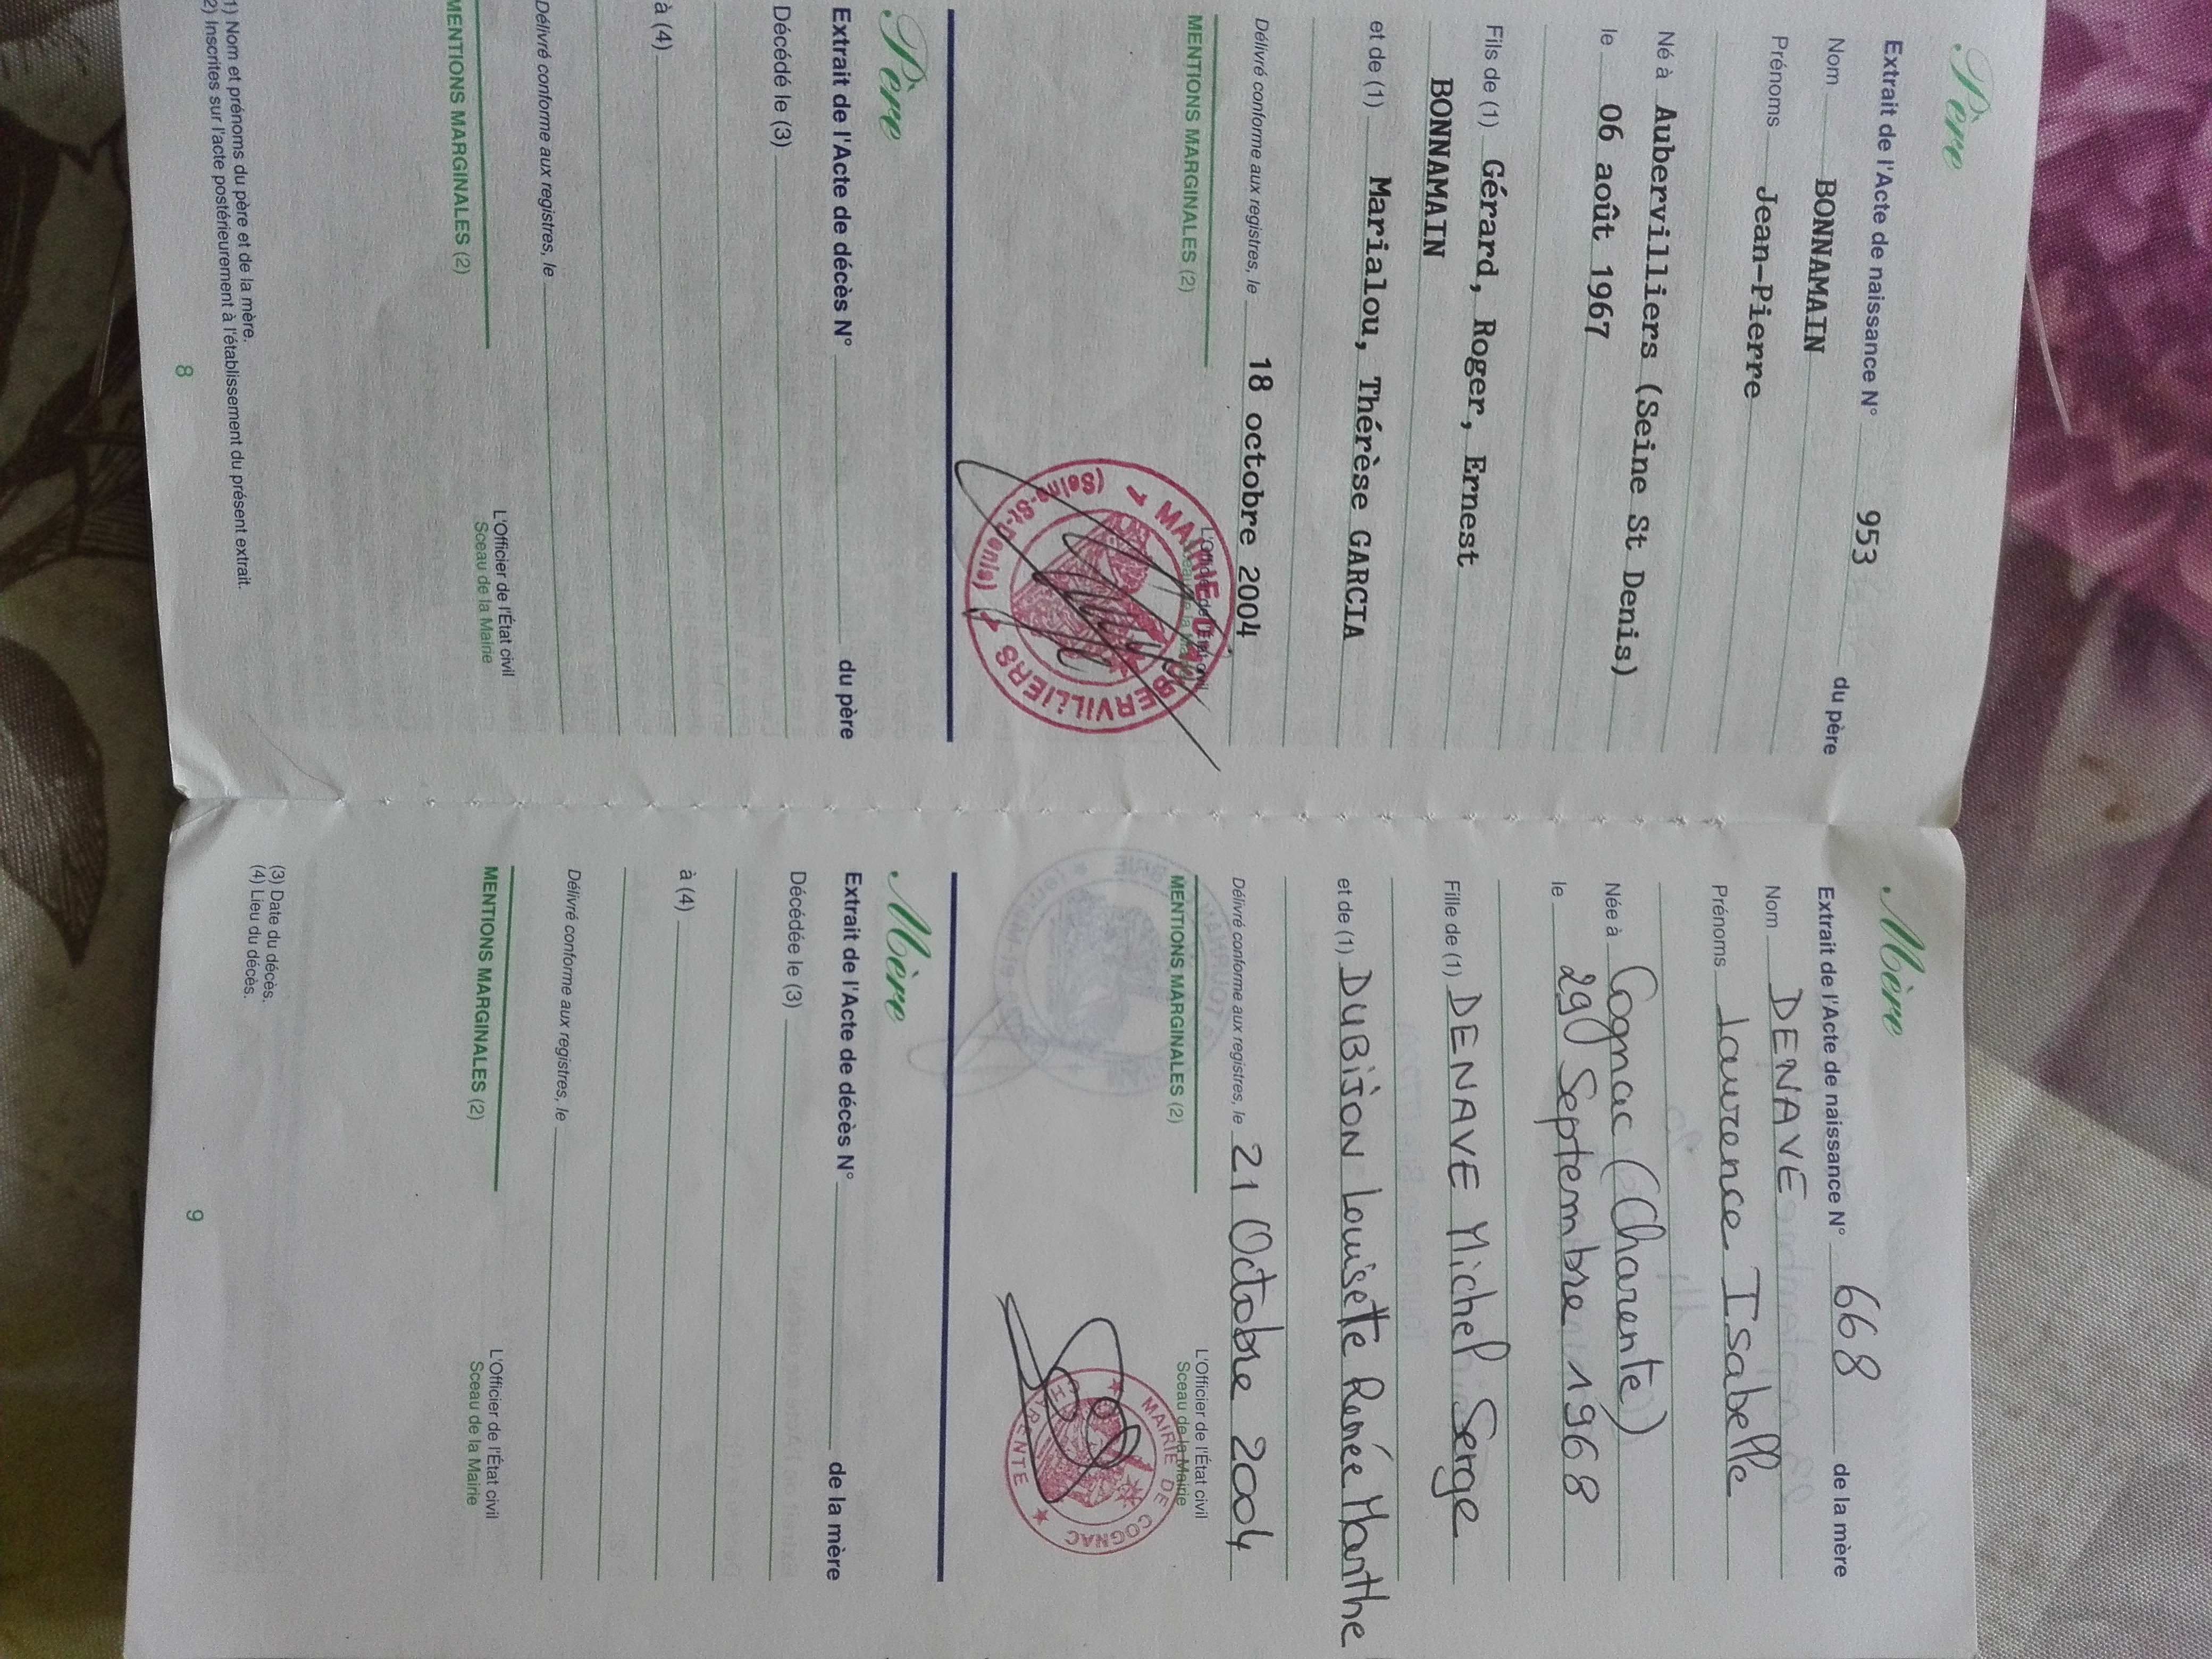 Père
Extrait de l'Acte de naissance N° 953 du père
Nom BONNAMAIN
Prénoms Jean-Pierre
Né à Aubervilliers (Seine St Denis)
le 06 août 1967
Fils de (1) Gérard, Roger, Ernest
BONNAMAIN
et de (1) Marialou, Thérèse GARCIA
Délivré conforme aux registres, le 18 octobre 2004
MENTIONS MARGINALES (2)
L'Officier de l'État civil
Sceau de la Mairie
MAIRIE D'AUBERVILLIERS
(Seine-St-Denis)
Père
Extrait de l'Acte de décès N° du père
Décédé le (3)
à (4)
Délivré conforme aux registres, le
MENTIONS MARGINALES (2)
L'Officier de l'État civil
Sceau de la Mairie
1) Nom et prénoms du père et de la mère.
2) Inscrites sur l'acte postérieurement à l'établissement du présent extrait.
8
Mère
Extrait de l'Acte de naissance N° 668 de la mère
Nom DENAVE
Prénoms Laurence Isabelle
Née à Cognac (Charente)
le 29 Septembre 1968
Fille de (1) DENAVE Michel Serge
et de (1) DUBIJON Louisette Renée Marthe
Délivré conforme aux registres, le 21 Octobre 2004
MENTIONS MARGINALES (2)
L'Officier de l'État civil
Sceau de la Mairie
MAIRIE DE COGNAC
CHARENTE
Mère
Extrait de l'Acte de décès N° de la mère
Décédée le (3)
à (4)
Délivré conforme aux registres, le
MENTIONS MARGINALES (2)
L'Officier de l'État civil
Sceau de la Mairie
(3) Date du décès.
(4) Lieu du décès.
9